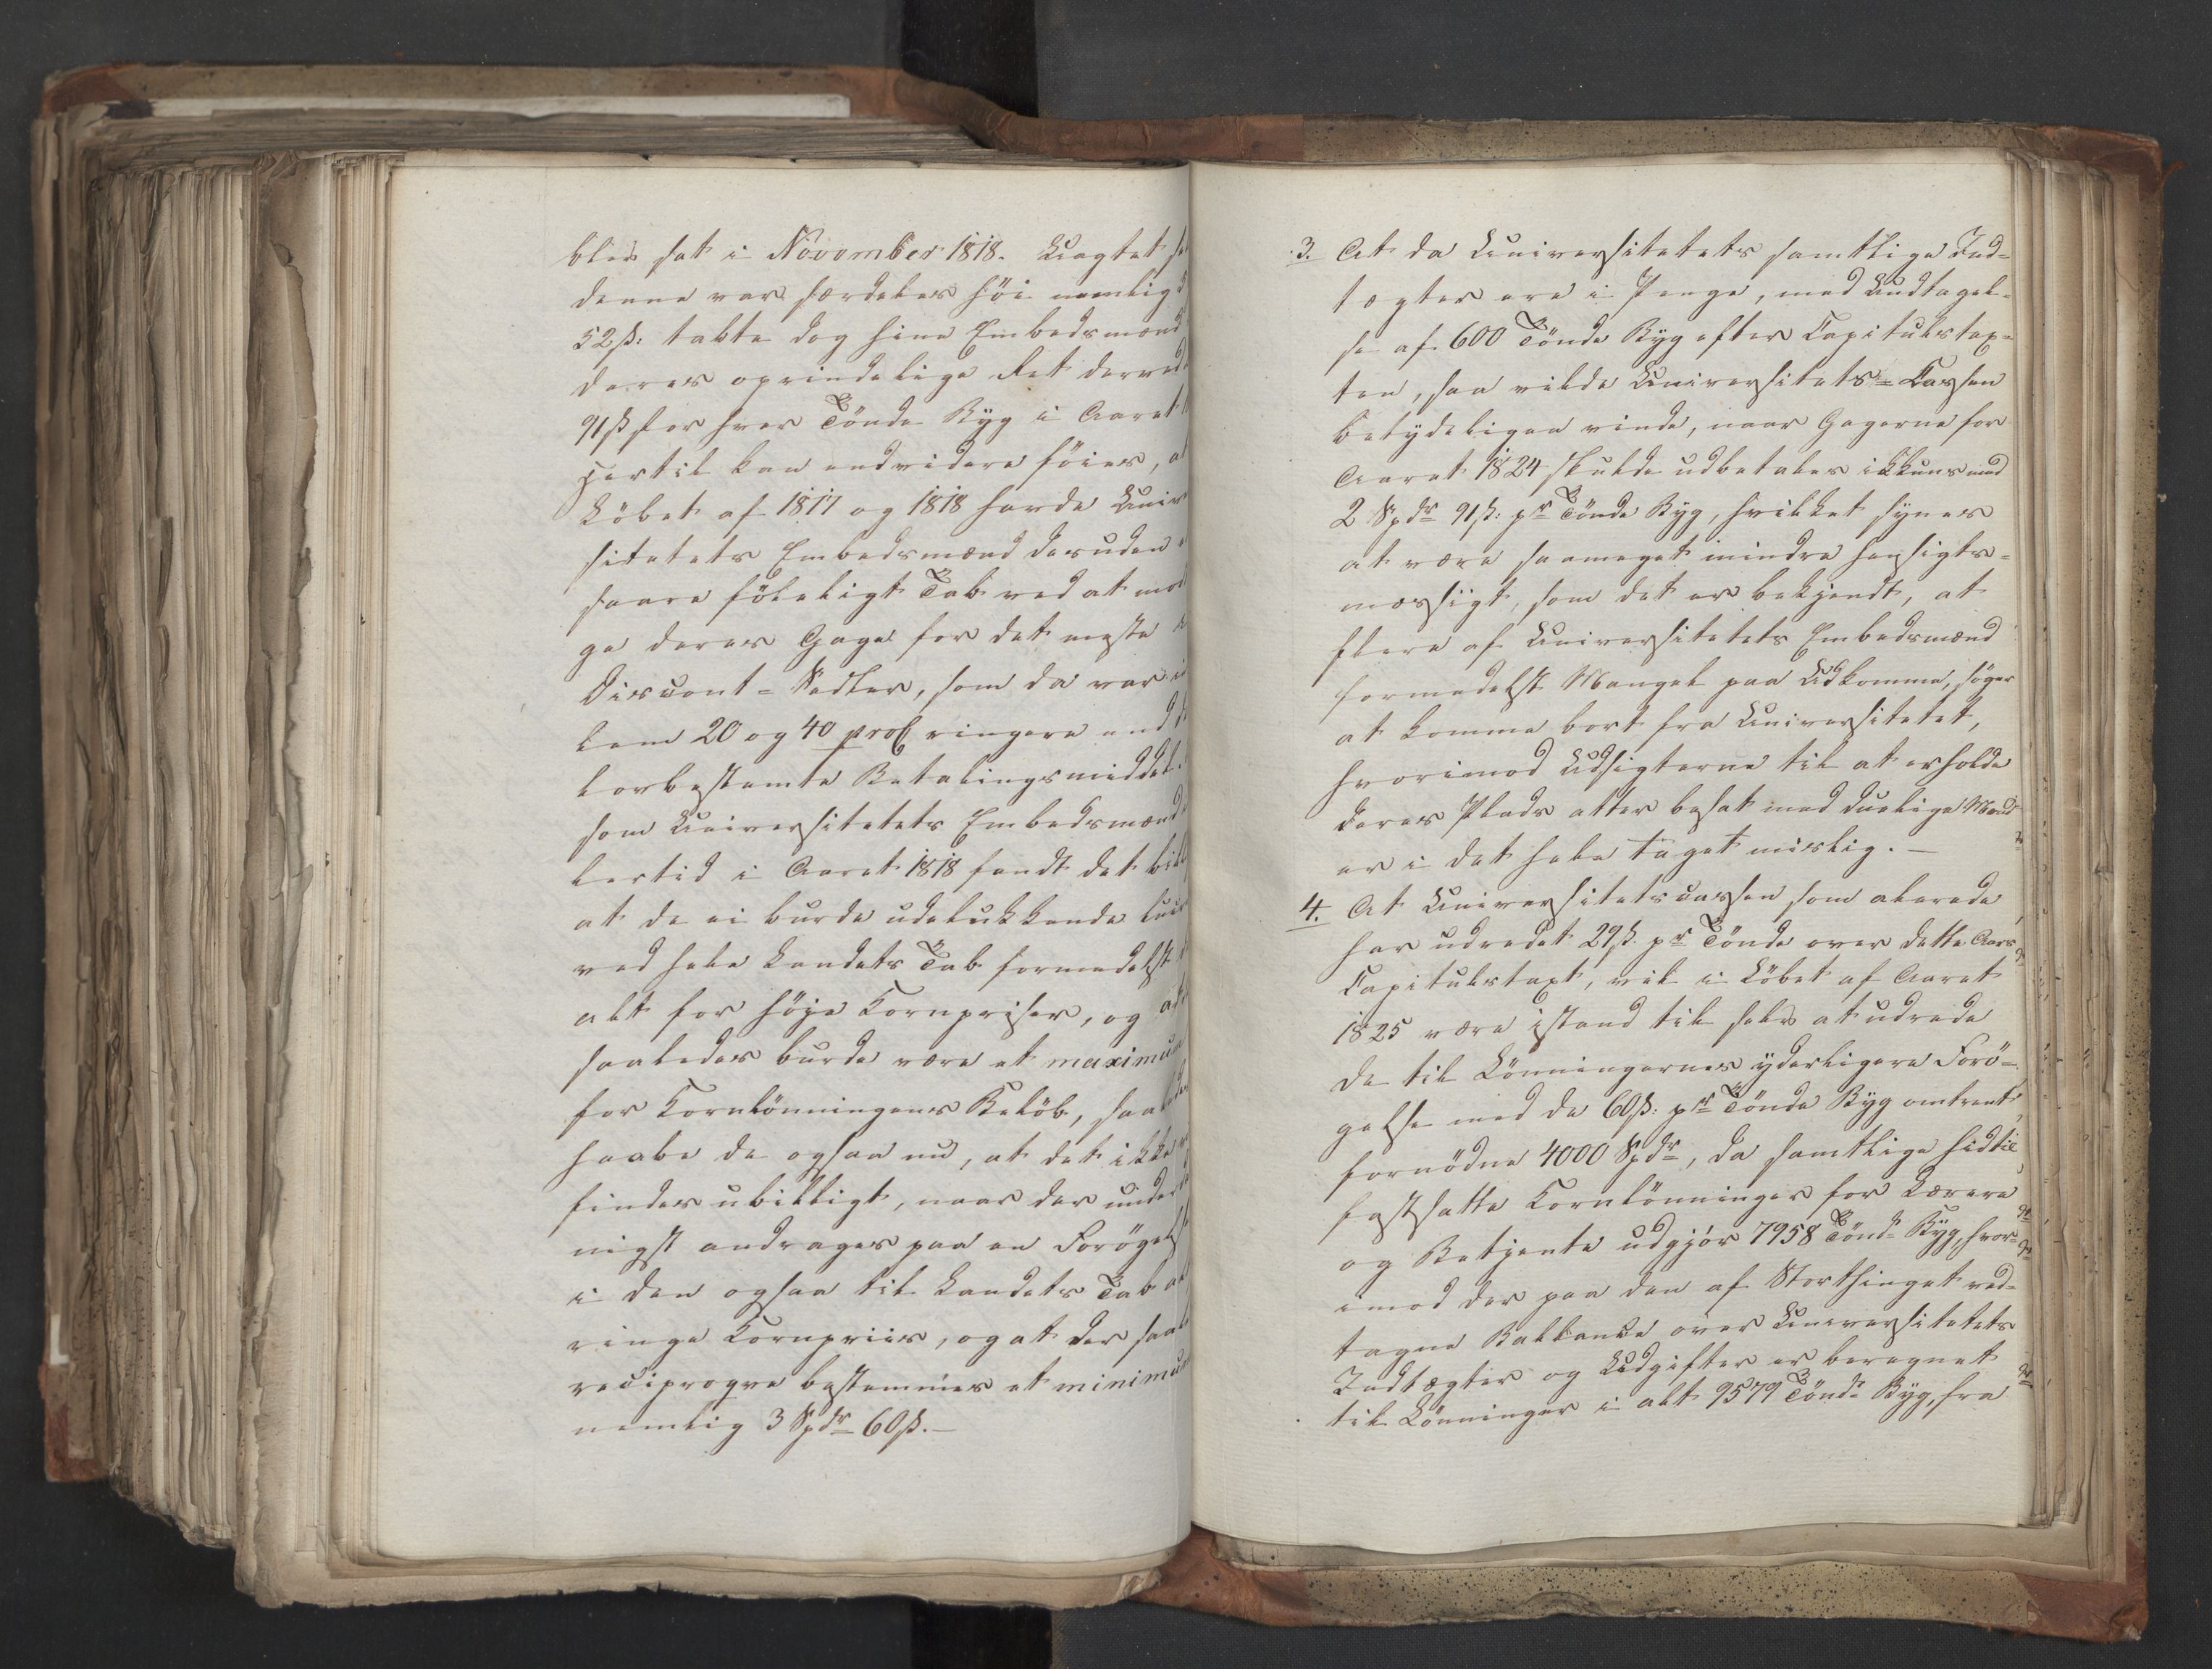 blev sat i November 1818. Uagtet
denne var særdeles höi nemlig
52 ß: tabte dog hine Embedsmænd
deres oprindelige Ret derved
91 ß for hver Tönde Byg i Aaret
Hertil kan endvidere föies, at
Löbet af 1817 og 1818 havde Univ
sitetets Embedsmænd desuden
saare föleligt Tab ved at mod
ge deres Gage for det meste
Discont-Sedler, som da var
lem 20 og 40 proC ringere end
lovbestemte Betalingsmiddel.
som Universitetets Embedsmænd
lertid i Aaret 1818 fandt det bil
at de ei burde udelukkende
ved hele Landets Tab formedelst
alt for höje Kornpriser, og at
saaledes burde være et maximum
for Kornlönningens Belöb, saaledes
haabe de ogsaa nu, at det ikke
findes ubilligt, naar der under
nigst andrages paa en Forögelse
i den ogsaa til Landets Tab
ringe Kornpriis, og at der saal
reciproqve bestemmes et minimum
nemlig 3 Spdr 60 ß. —
3. At da Universitetets samtlige Ind-
tægter ere i Penge, med Undtagel-
se af 600 Tönde Byg efter Capitulstax-
ten, saa vilde Universitets-Cassen
betydeligen vinde, naar Gagerne for
Aaret 1824 skulde udbetales ikkuns med
2 Spdr 91 ß: pr Tönde Byg, hvilket synes
at være saameget mindre hensigts-
mæssigt, som det er bekjendt, at
flere af Universitetets Embedsmænd
formedelst Mangel paa Udkomme, söger
at komme bort fra Universitetet,
hvorimod Udsigterne til at erholde
deres Plads atter besat med duelige Mænd
er i det hele taget mislig. —
4. At Universitetscassen som allerede
har udredet 29 ß. pr Tönde over dette Aars
Capitulstaxt, vil i Löbet af Aaret
1825 være istand til selv at udrede
de til Lönningernes yderligere Forö-
gelse med de 60 ß: pr Tönde Byg omtrent
fornödne 4000 Spdr, da samtlige hidtil
fastsatte Kornlönninger for Lærere
og Betjente udgjör 7958 Tönd Byg, hvor-
imod der paa den af Storthinget ved-
tagne Ballance over Universitetets
Indtægter og Udgifter er beregnet
til Lönninger i alt 9579 Tönd Byg, fra